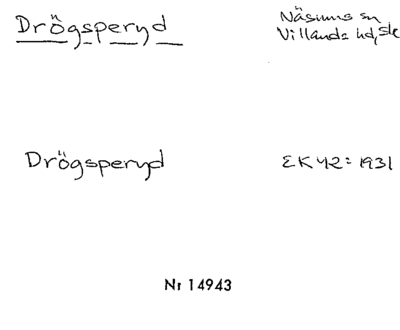 Drögsperyd
Näsums sn
Villands hd, Sk
Drögsperyd
EK 42: 1931
Nr 14943